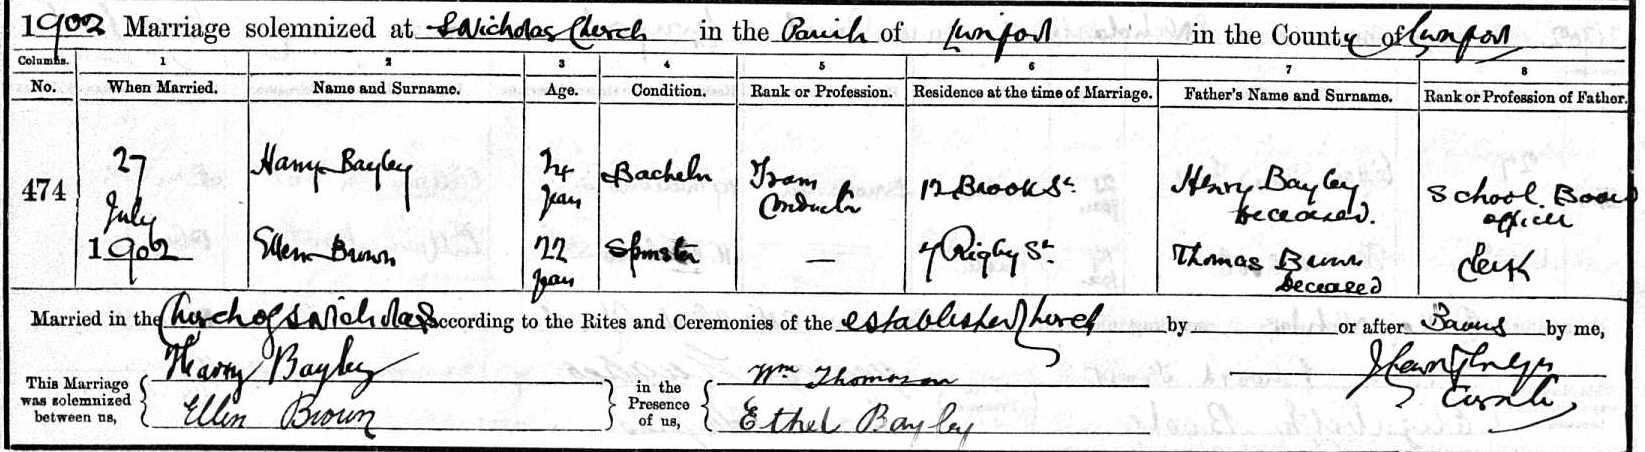 1902 Marriage solemnized at St Nicholas Church in the Parish of Liverpool in the County of Liverpool
Columns. 1 2 3 4 5 6 7 8
No. When Married. Name and Surname. Age. Condition. Rank or Profession. Residence at the time of Marriage. Father's Name and Surname. Rank or Profession of Father.
474
27 July 1902
Harry Bayley 24 years Bachelor Tram Conductor 12 Brook St. Henry Bayley deceased. School Board officer
Ellen Brown 22 years Spinster — 4 Rigby St. Thomas Brown deceased Clerk
Married in the Church of St Nicholas according to the Rites and Ceremonies of the established Church by or after Banns by me,
This Marriage was solemnized between us,
Harry Bayley
Ellen Brown
in the Presence of us,
Wm Thomoson
Ethel Bayley
Curate